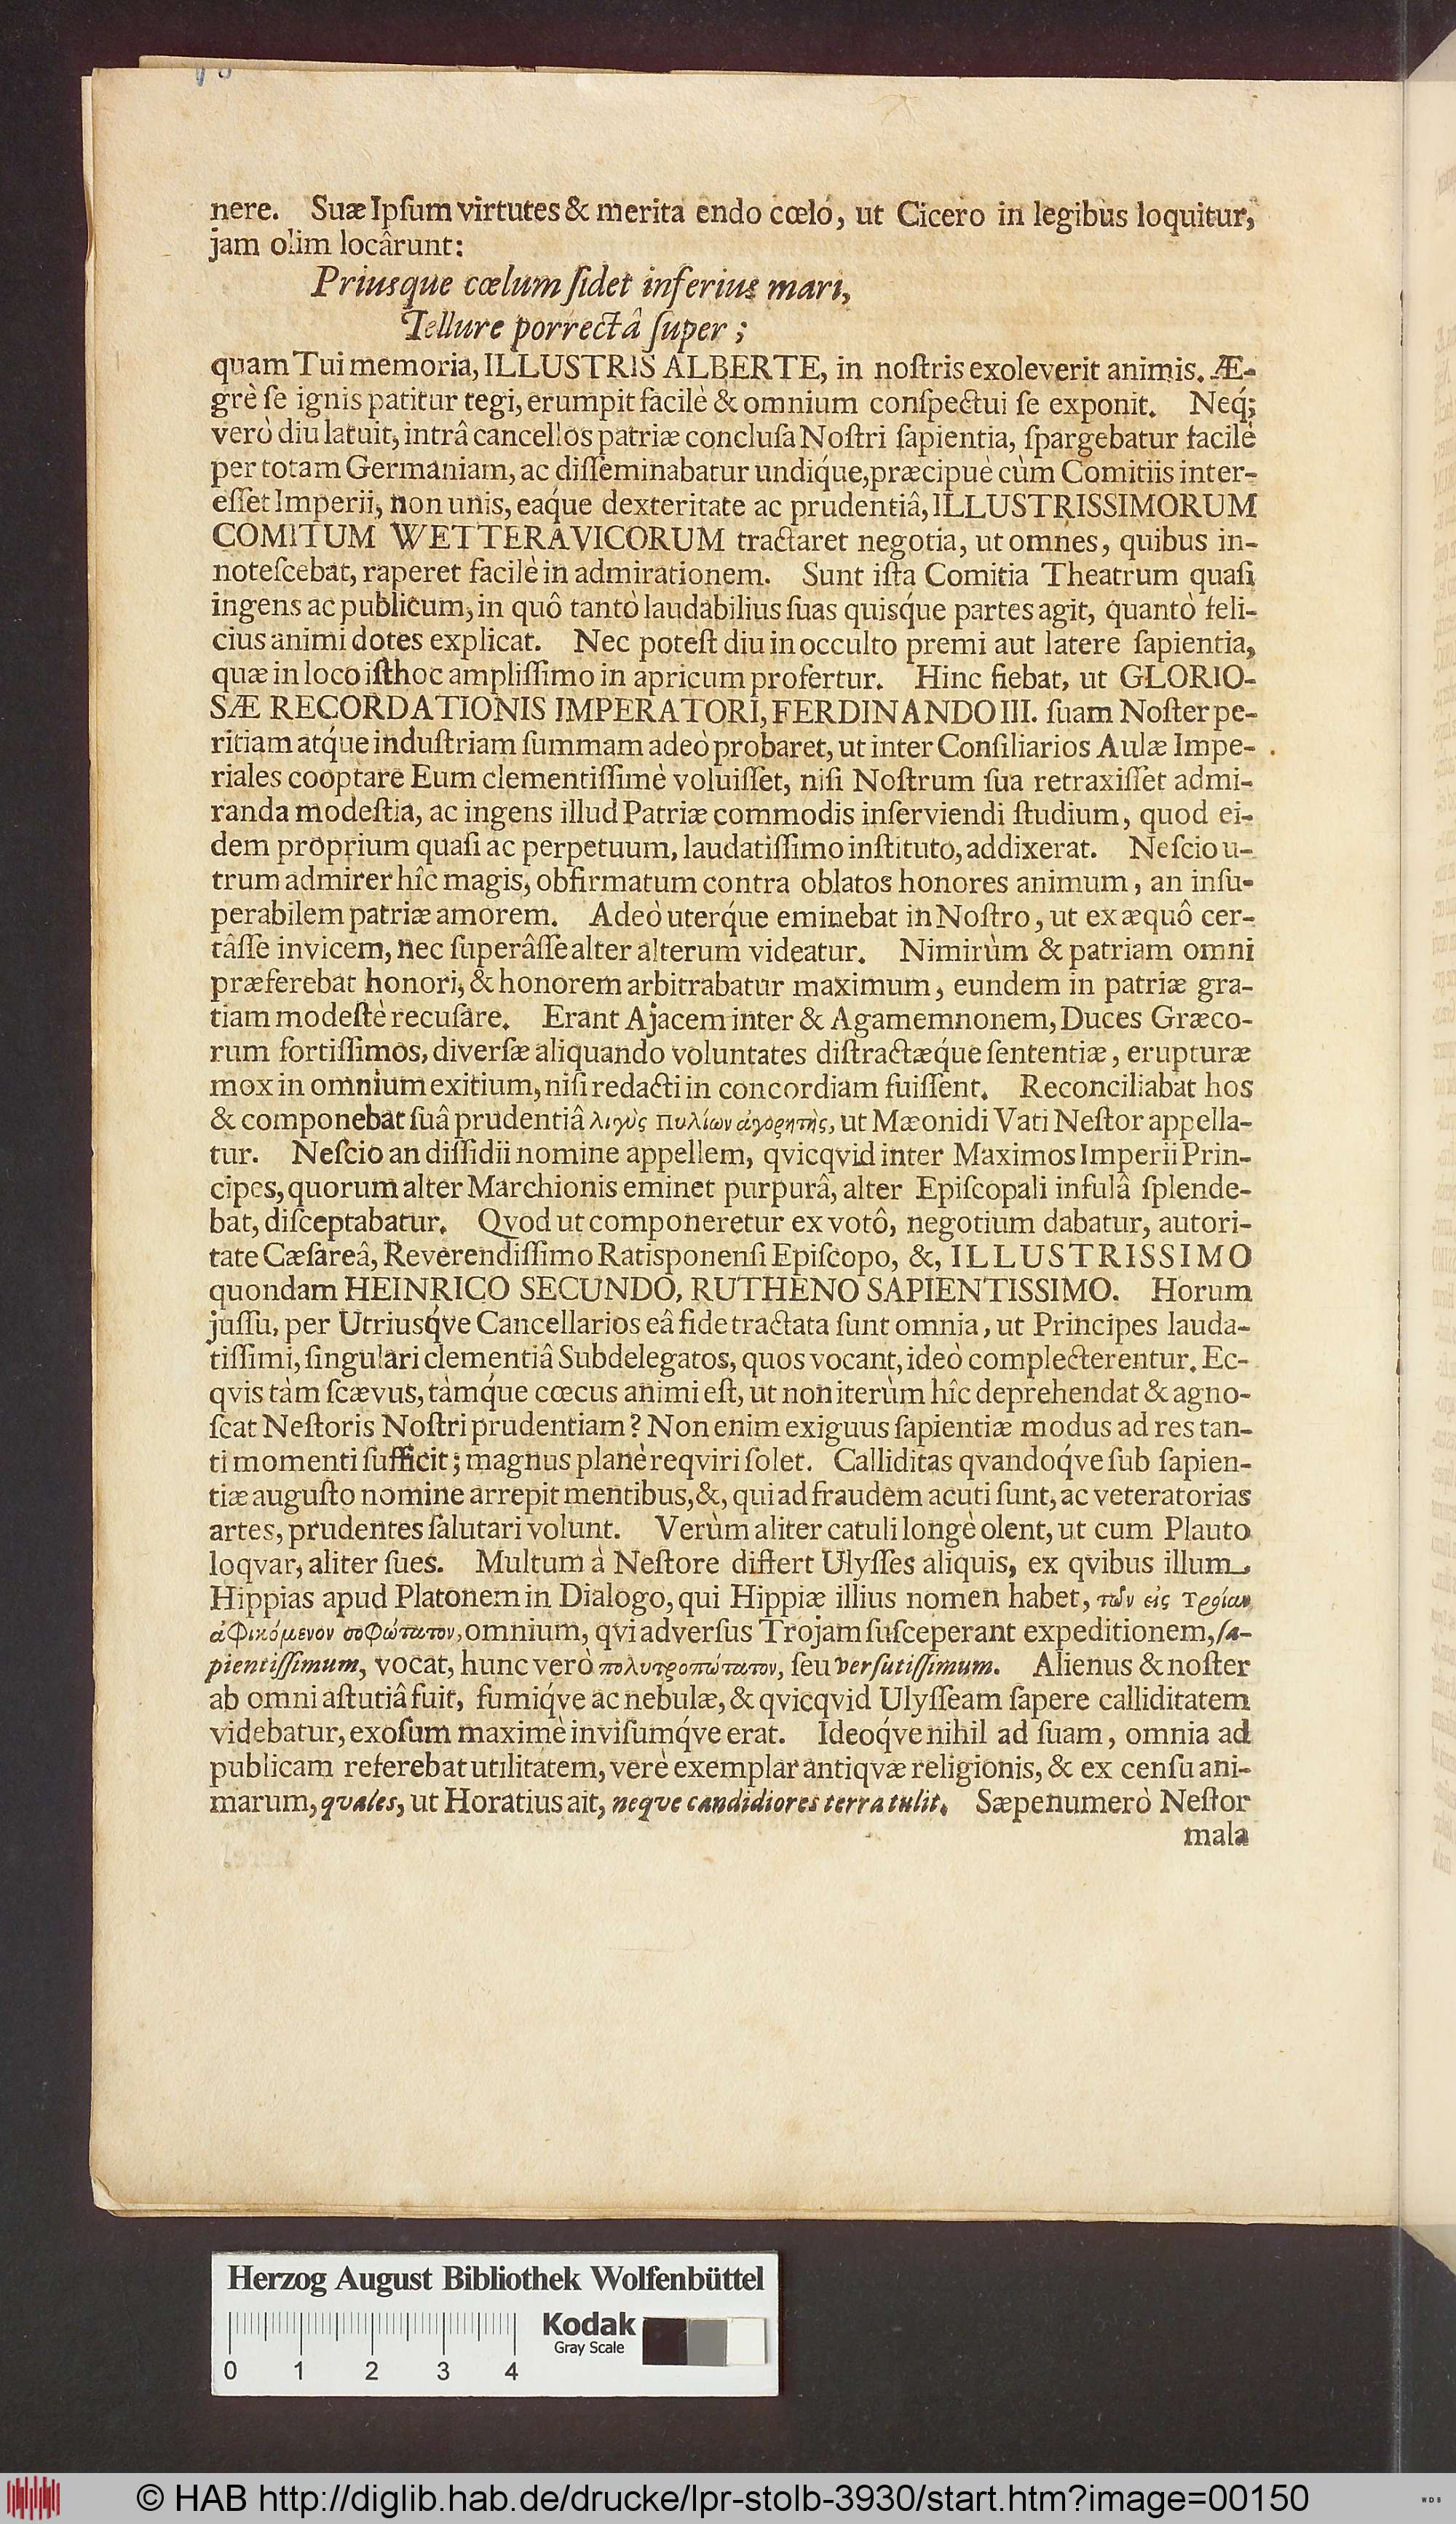 nere. Suæ Ipſum virtutes & merita endo cœló, ut Cicero in legibus loquitur,
jam olim locârunt:
Priusque cœlum ſidet inferius mari,
Tellure porrectâ ſuper;
quam Tui memoria, ILLUSTRIS ALBERTE, in noſtris exoleverit animis. Æ-
grè ſe ignis patitur tegi, erumpit facilè & omnium conſpectui ſe exponit. Neq́;
verò diu latuit, intrâ cancellos patriæ concluſa Noſtri ſapientia, ſpargebatur facilè
per totam Germaniam, ac diſſeminabatur undiq́ue, præcipuè cùm Comitiis inter-
eſſet Imperii, non unis, eaq́ue dexteritate ac prudentiâ, ILLUSTRISSIMORUM
COMITUM WETTERAVICORUM tractaret negotia, ut omnes, quibus in-
noteſcebat, raperet facilè in admirationem. Sunt iſta Comitia Theatrum quaſi
ingens ac publicum, in quô tantò laudabilius ſuas quisq́ue partes agit, quantò feli-
cius animi dotes explicat. Nec poteſt diu in occulto premi aut latere ſapientia,
quæ in loco iſthoc ampliſſimo in apricum profertur. Hinc fiebat, ut GLORIO-
SÆ RECORDATIONIS IMPERATORI, FERDINANDO III. ſuam Noſter pe-
ritiam atq́ue induſtriam ſummam adeò probaret, ut inter Conſiliarios Aulæ Impe-
riales cooptare Eum clementiſſimè voluiſſet, niſi Noſtrum ſua retraxiſſet admi-
randa modeſtia, ac ingens illud Patriæ commodis inſerviendi ſtudium, quod ei-
dem proprium quaſi ac perpetuum, laudatiſſimo inſtituto, addixerat. Neſcio u-
trum admirer hîc magis, obfirmatum contra oblatos honores animum, an inſu-
perabilem patriæ amorem. Adeò uterq́ue eminebat in Noſtro, ut ex æquô cer-
tâſſe invicem, nec ſuperâſſe alter alterum videatur. Nimirùm & patriam omni
præferebat honori, & honorem arbitrabatur maximum, eundem in patriæ gra-
tiam modeſtè recuſare. Erant Ajacem inter & Agamemnonem, Duces Græco-
rum fortiſſimos, diverſæ aliquando voluntates diſtractæq́ue ſententiæ, erupturæ
mox in omnium exitium, niſi redacti in concordiam fuiſſent. Reconciliabat hos
& componebat ſuâ prudentiâ λιγὺς πυλίων ἀγορητὴς, ut Mæonidi Vati Neſtor appella-
tur. Neſcio an diſſidii nomine appellem, qvicqvid inter Maximos Imperii Prin-
cipes, quorum alter Marchionis eminet purpurâ, alter Epiſcopali infulâ ſplende-
bat, diſceptabatur. Qvod ut componeretur ex votô, negotium dabatur, autori-
tate Cæſareâ, Reverendiſſimo Ratisponenſi Epiſcopo, &, ILLUSTRISSIMO
quondam HEINRICO SECUNDO, RUTHENO SAPIENTISSIMO. Horum
juſſu, per Utriusq́ve Cancellarios eâ fide tractata ſunt omnia, ut Principes lauda-
tiſſimi, ſingulari clementiâ Subdelegatos, quos vocant, ideò complecterentur. Ec-
qvis tàm ſcævus, tàmq́ue cœcus animi eſt, ut non iterùm hîc deprehendat & agno-
ſcat Neſtoris Noſtri prudentiam? Non enim exiguus ſapientiæ modus ad res tan-
ti momenti ſufficit; magnus planè reqviri ſolet. Calliditas qvandoq́ve ſub ſapien-
tiæ auguſto nomine arrepit mentibus, &, qui ad fraudem acuti ſunt, ac veteratorias
artes, prudentes ſalutari volunt. Verùm aliter catuli longè olent, ut cum Plauto
loqvar, aliter ſues. Multum à Neſtore differt Ulyſſes aliquis, ex qvibus illum
Hippias apud Platonem in Dialogo, qui Hippiæ illius nomen habet, τῶν εἰς Τροίαν
ἀφικόμενον σοφώτατον, omnium, qvi adverſus Trojam ſuſceperant expeditionem, ſa-
pientiſſimum, vocat, hunc verò πολυτροπώτατον, ſeu verſutiſſimum. Alienus & noſter
ab omni aſtutiâ fuit, fumiq́ve ac nebulæ, & qvicqvid Ulyſſeam ſapere calliditatem
videbatur, exoſum maximè inviſumq́ve erat. Ideoq́ve nihil ad ſuam, omnia ad
publicam referebat utilitatem, verè exemplar antiqvæ religionis, & ex cenſu ani-
marum, qvales, ut Horatius ait, neqve candidiores terra tulit. Sæpenumerò Neſtor
mala
Herzog August Bibliothek Wolfenbüttel
Kodak
Gray Scale
0 1 2 3 4
© HAB http://diglib.hab.de/drucke/lpr-stolb-3930/start.htm?image=00150
WDB